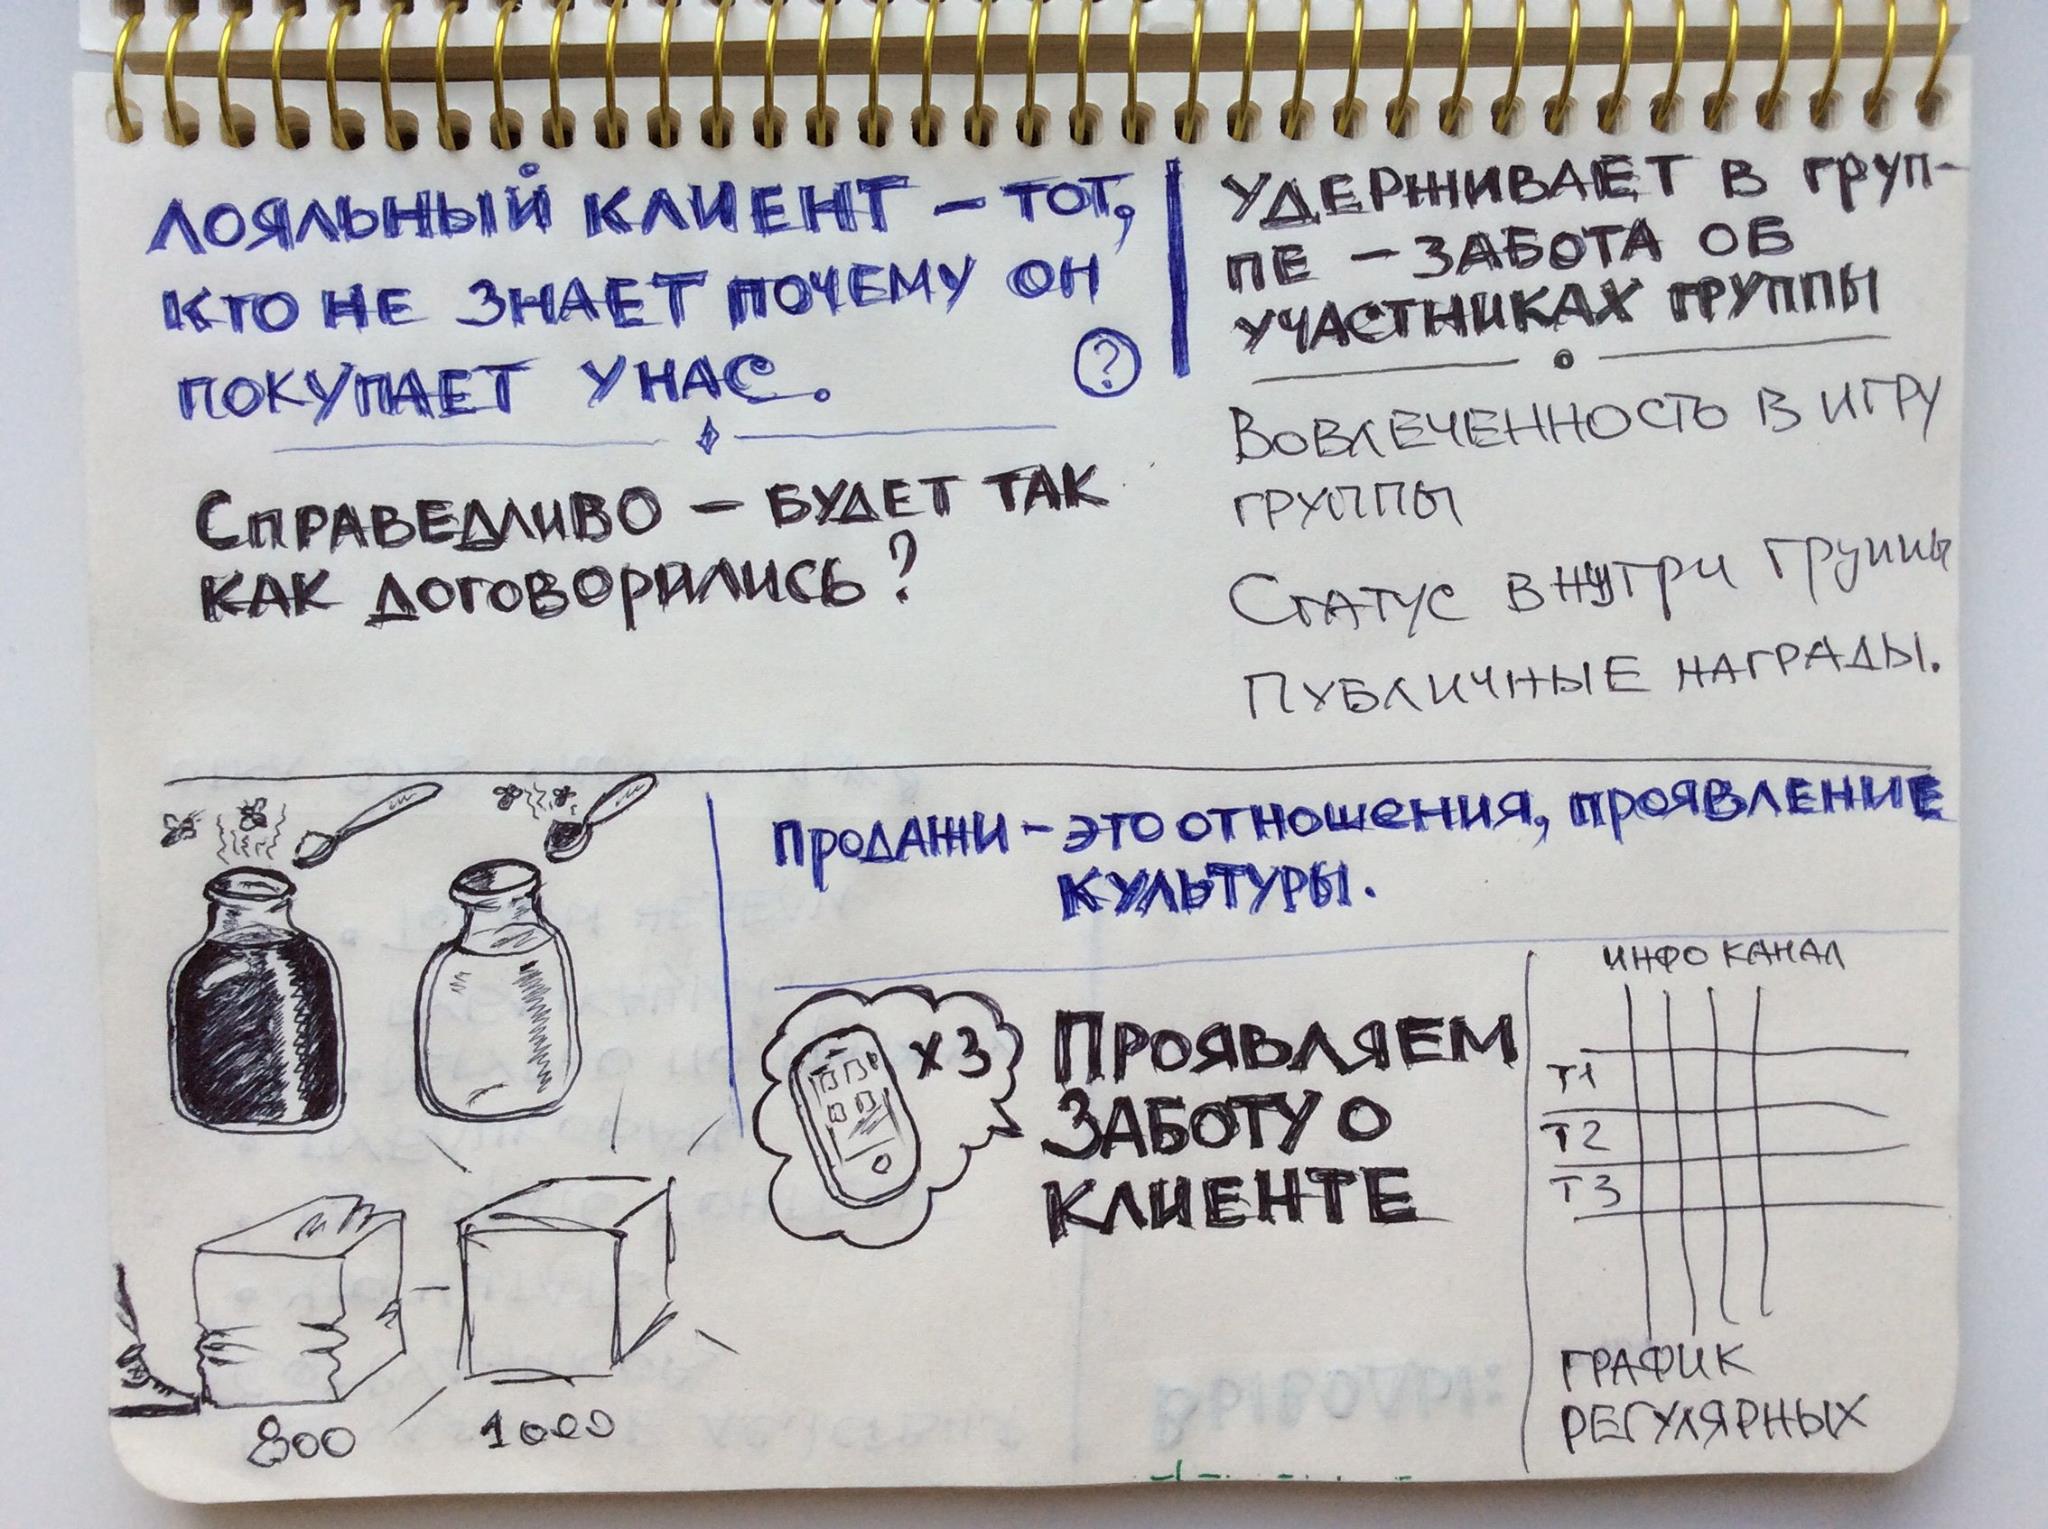 ЛОЯЛЬНЫЙ КЛИЕНТ – ТОТ,
КТО НЕ ЗНАЕТ ПОЧЕМУ ОН
ПОКУПАЕТ У НАС.
?
СПРАВЕДЛИВО – БУДЕТ ТАК
КАК ДОГОВОРИЛИСЬ?
УДЕРЖИВАЕТ В ГРУП-
ПЕ – ЗАБОТА ОБ
УЧАСТНИКАХ ГРУППЫ
ВОВЛЕЧЕННОСТЬ В ИГРУ
ГРУППЫ
СТАТУС ВНУТРИ ГРУППЫ
ПУБЛИЧНЫЕ НАГРАДЫ.
800
1000
ПРОДАЖИ – ЭТО ОТНОШЕНИЯ, ПРОЯВЛЕНИЕ
КУЛЬТУРЫ.
х 3
ПРОЯВЛЯЕМ
ЗАБОТУ О
КЛИЕНТЕ
ИНФО КАНАЛ
Т1
Т2
Т3
ГРАФИК
РЕГУЛЯРНЫХ